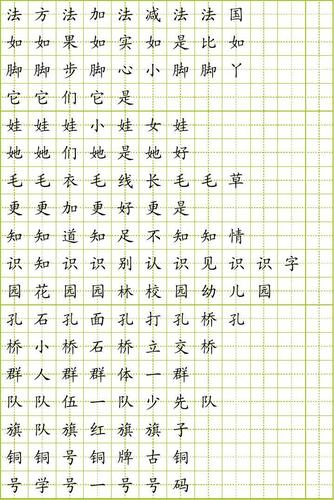 法方法加法减法法国
如如果如实如是比如
脚脚步脚心小脚脚丫
它它们它是
娃娃娃小娃女娃
她她们她是她好
毛毛衣毛线长毛毛草
更更加更好更是
知知道知足不知知情
识知识识别认识见识识字
园花园园林校园幼儿园
孔石孔面孔打孔桥孔
桥小桥石桥立交桥
群人群群体一群
队队伍一队少先队
旗队旗红旗旗子
铜铜号铜牌古铜
号学号一号号码